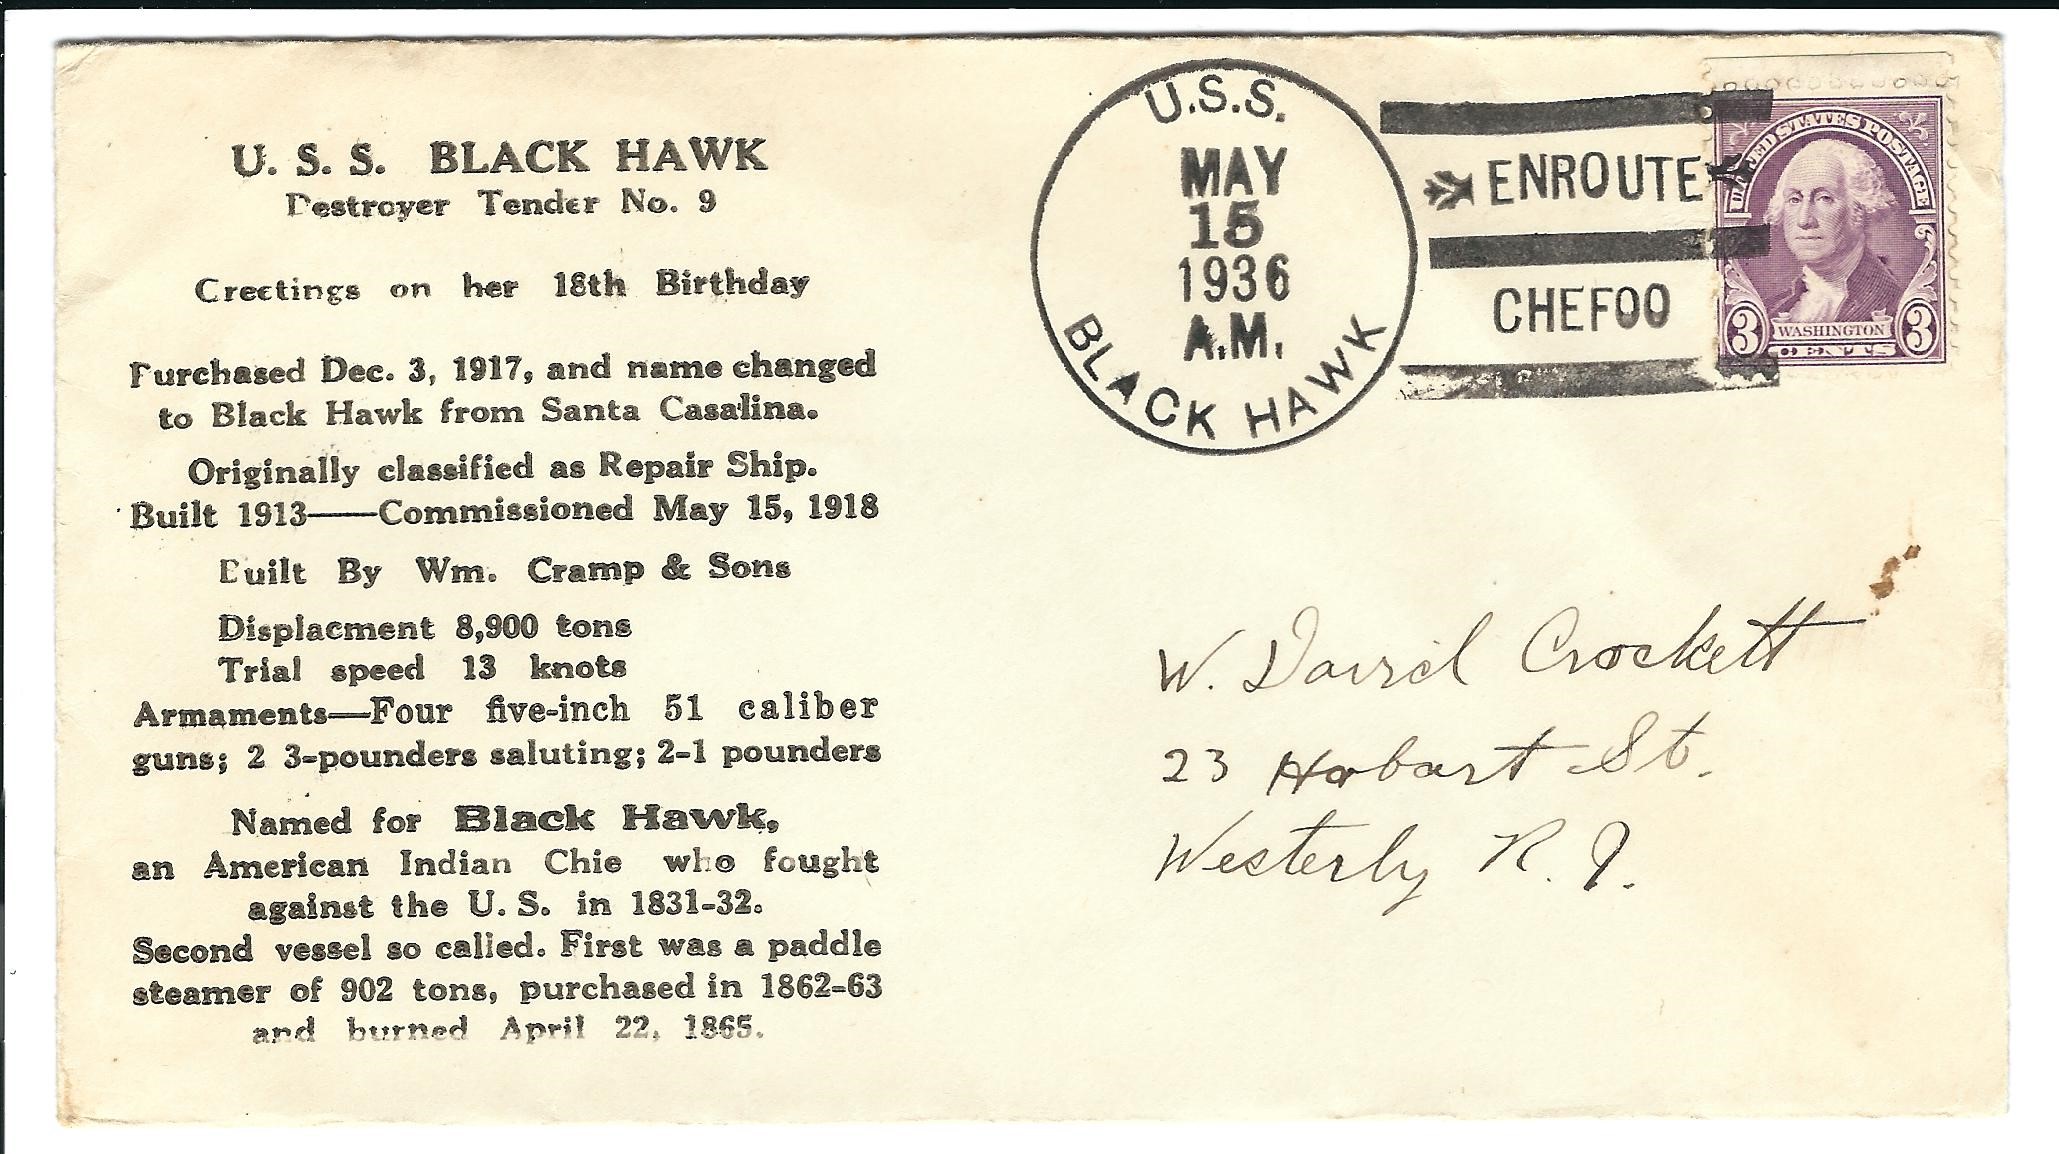 U. S. S. BLACK HAWK
Destroyer Tender No. 9
Greetings on her 18th Birthday
Purchased Dec. 3, 1917, and name changed
to Black Hawk from Santa Casalina.
Originally classified as Repair Ship.
Built 1913——Commissioned May 15, 1918
Built By Wm. Cramp & Sons
Displacment 8,900 tons
Trial speed 13 knots
Armaments—Four five-inch 51 caliber
guns; 2 3-pounders saluting; 2-1 pounders
Named for Black Hawk,
an American Indian Chie who fought
against the U. S. in 1831-32.
Second vessel so called. First was a paddle
steamer of 902 tons, purchased in 1862-63
and burned April 22, 1865.
U.S.S.
MAY
15
1936
A.M.
BLACK HAWK
ENROUTE
CHEFOO
UNITED STATES POSTAGE
3 WASHINGTON 3
CENTS
W. David Crockett
23 Hobart St.
Westerly R. I.